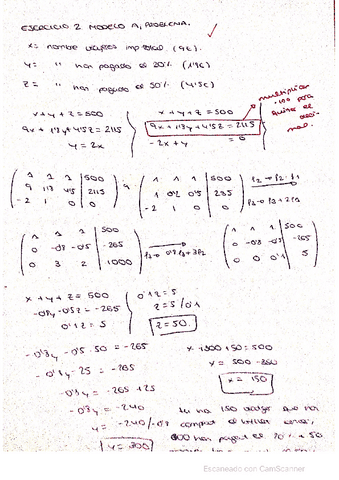 EJERCICIO 2 MODELO A, PROBLEMA.
x = nombre viatgers imp total (9€).
y = " han pagado el 20% (1'8€)
z = " han pagado el 50% (4'5€)
x + y + z = 500
9x + 1'8y + 4'5z = 2115
y = 2x
x + y + z = 500
9x + 1'8y + 4'5z = 2115
-2x + y = 0
multiplicar
·100 para
quitar el
decimal.
1 1 1 | 500
9 1'8 4'5 | 2115
-2 1 0 | 0
1 1 1 | 500
1 0'2 0'5 | 235
-2 1 0 | 0
F2 → F2 - F1
F3 → F3 + 2F1
1 1 1 | 500
0 -0'8 -0'5 | -265
0 3 2 | 1000
F3 → 0'8F3 + 3F2
1 1 1 | 500
0 -0'8 -0'5 | -265
0 0 0'1 | 5
x + y + z = 500
-0'8y - 0'5z = -265
0'1z = 5
0'1z = 5
z = 5/0'1
z = 50.
-0'8y - 0'5 · 50 = -265
-0'8y - 25 = -265
-0'8y = -265 + 25
-0'8y = -240
y = -240/-0'8
y = 300
x + 300 + 50 = 500
x = 500 - 350
x = 150
150
300 han 20% 50
Escaneado con CamScanner